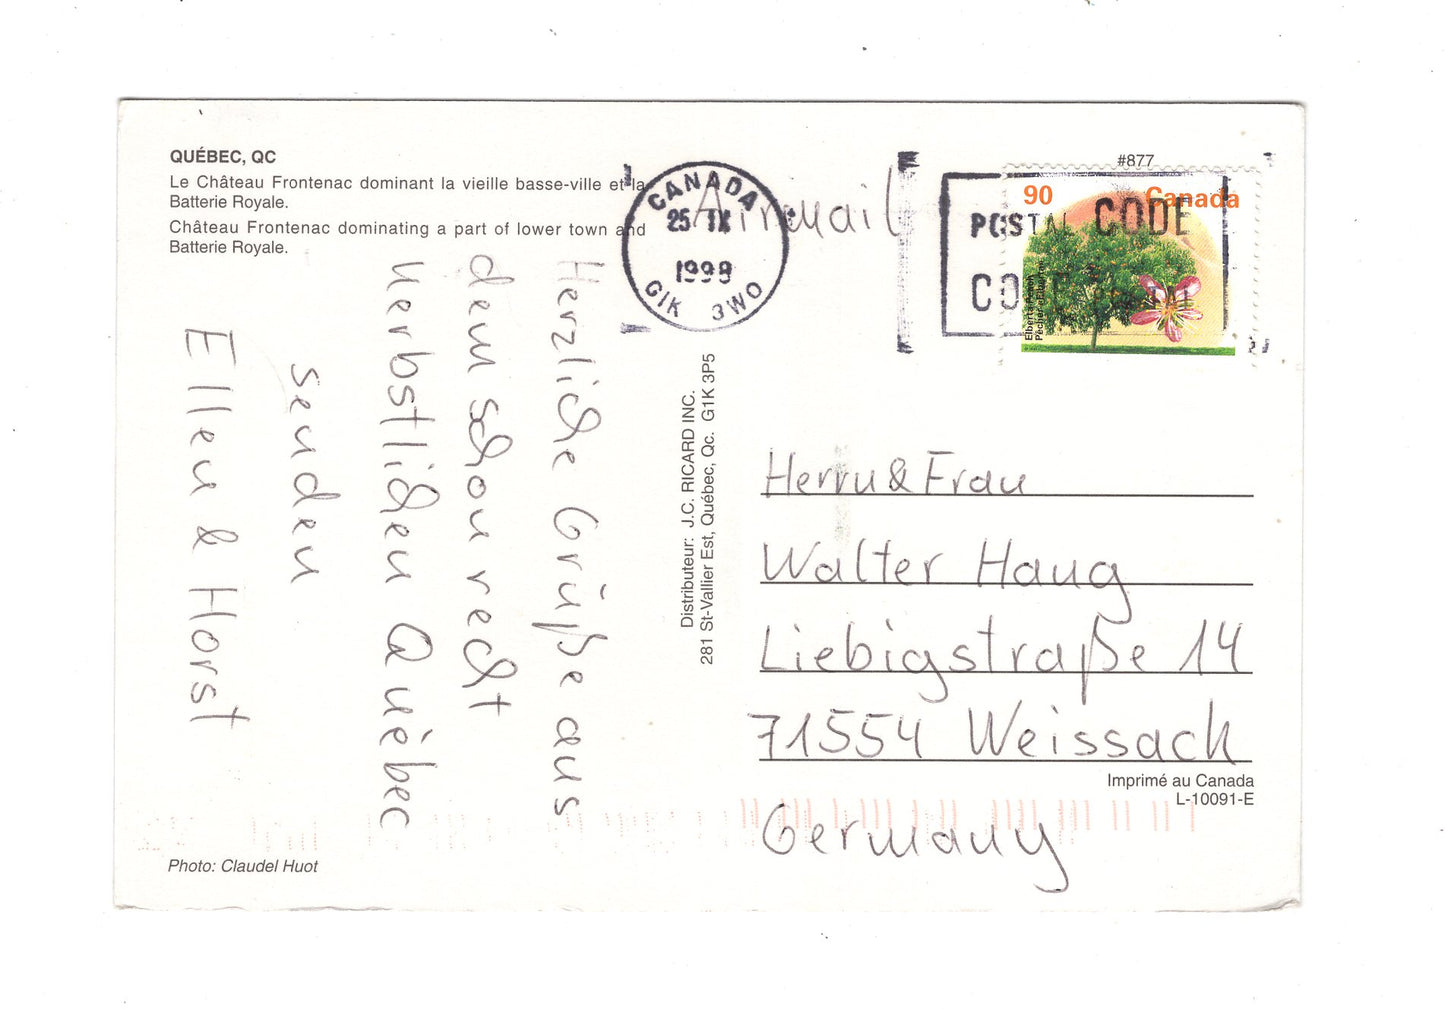 QUÉBEC, QC
Le Château Frontenac dominant la vieille basse-ville et la
Batterie Royale.
Château Frontenac dominating a part of lower town and
Batterie Royale.
Herzliche Grüße aus
dem schon recht
herbstlichen Québec
senden
Ellen & Horst
Photo: Claudel Huot
Distributeur: J.C. RICARD INC.
281 St-Vallier Est, Québec, Qc. G1K 3P5
CANADA
25 IX
1998
G1K 3W0
Airmail
#877
90 Canada
Elberta Peach
POSTAL CODE
CODE POSTAL
Herrn & Frau
Walter Haug
Liebigstraße 14
71554 Weissach
Germany
Imprimé au Canada
L-10091-E